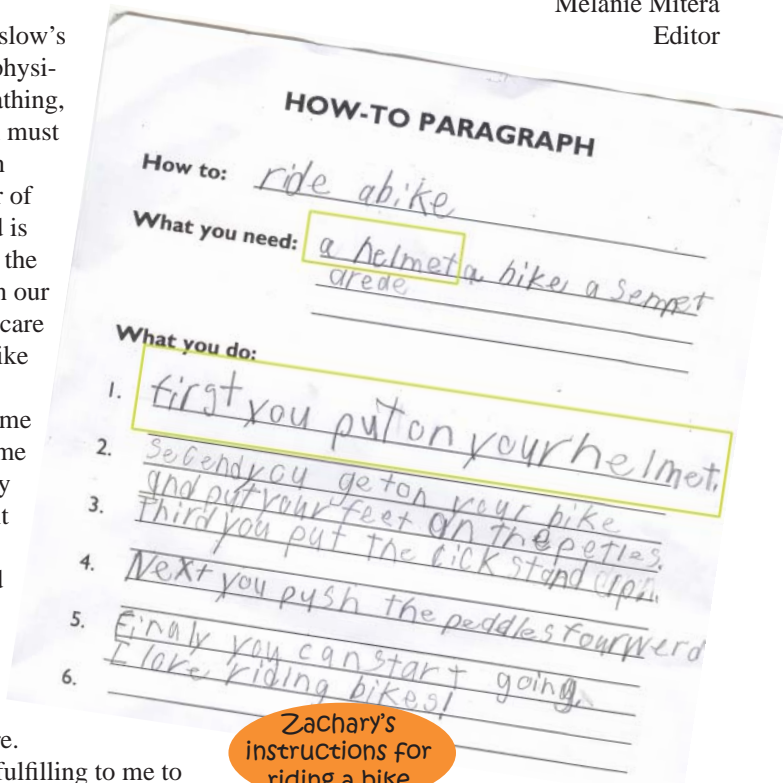 Melanie Mitera
Editor
slow's
physi-
athing,
must
r of
d is
the
n our
care
ike
me
me
y
t
d
re.
fulfilling to me to
HOW-TO PARAGRAPH
How to: ride abike
What you need: a helmet a bike, a Semmet
arede
What you do:
1. first you put on your helmet.
2. Secend you get on your bike
and put your feet on the petles.
3. Third you put the cick stand upn.
4. Next you push the peddles fourwerd
5. Finaly you can start going.
I love riding bikes!
6.
Zachary's
instructions for
riding a bike